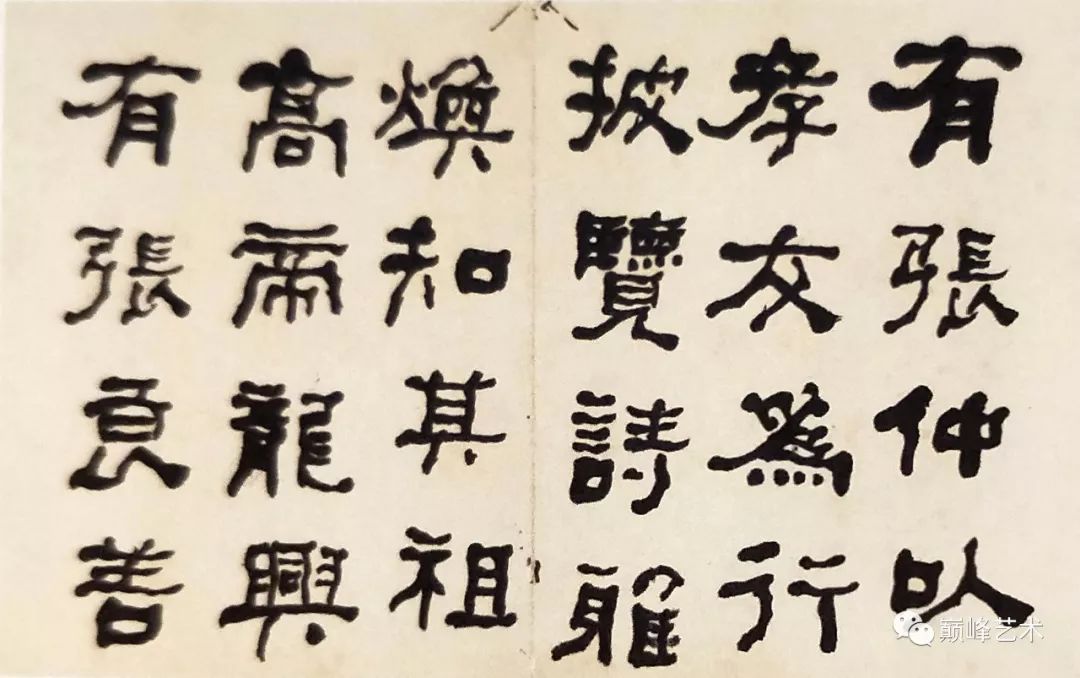 有張仲以
孝友爲行
披覽詩雅
煥知其祖
高帝龍興
有張良善
巅峰艺术